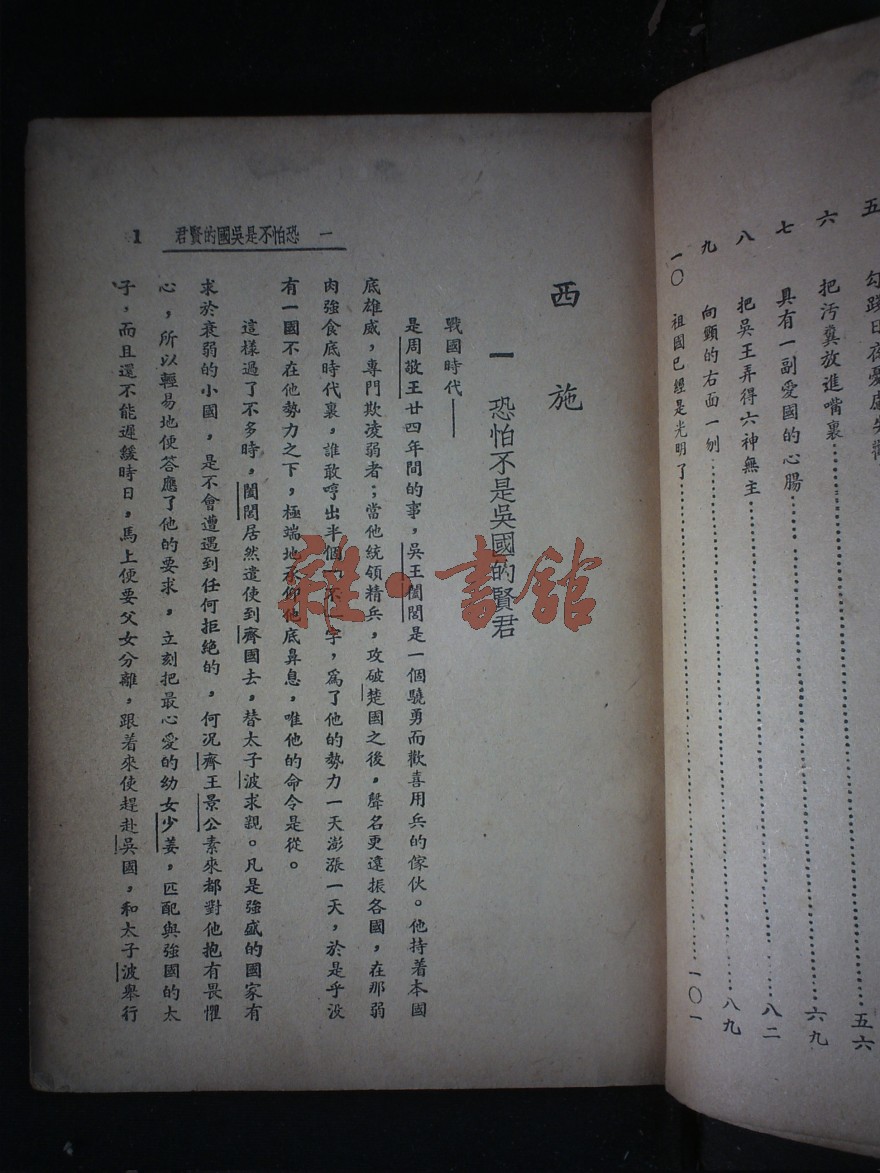 五 勾踐日夜憂慮
五六
六 把汚糞放進嘴裏……六九
七 具有一副愛國的心腸……八二
八 把吳王弄得六神無主……八九
九 向頸的右面一刎……
一〇 祖國已經是光明了……一〇一
一 恐怕不是吳國的賢君 1
西施
一 恐怕不是吳國的賢君
戰國時代——
是周敬王廿四年間的事，吳王闔閭是一個驍勇而歡喜用兵的傢伙。他持着本國
底雄威，專門欺凌弱者；當他統領精兵，攻破楚國之後，聲名更遠振各國，在那弱
肉強食底時代裏，誰敢哼出半個「不」字，爲了他的勢力一天澎漲一天，於是乎沒
有一國不在他勢力之下，極端地承仰他底鼻息，唯他的命令是從。
這樣過了不多時，闔閭居然遣使到齊國去，替太子波求親。凡是強盛的國家有
求於衰弱的小國，是不會遭遇到任何拒絕的，何况齊王景公素來都對他抱有畏懼
心，所以輕易地便答應了他的要求，立刻把最心愛的幼女少姜，匹配與強國的太
子，而且還不能遲緩時日，馬上便要父女分離，跟着來使趕赴吳國，和太子波舉行
雜·書館